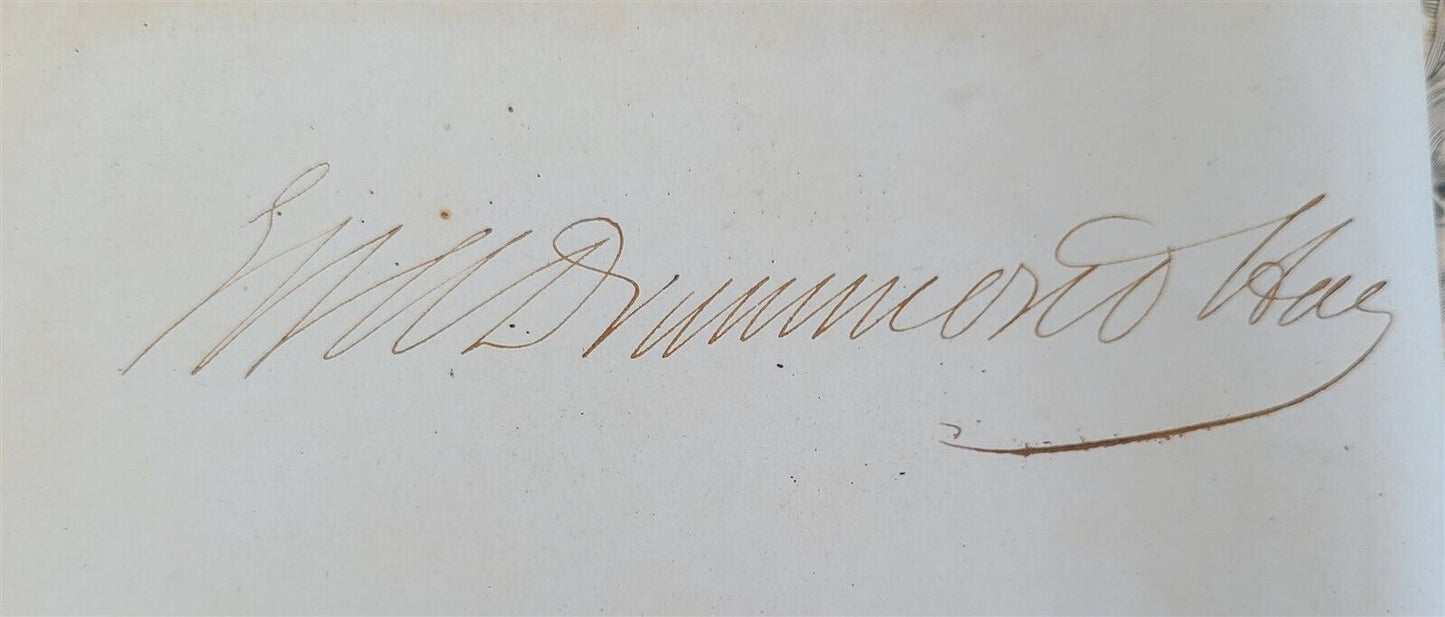 Drummond Hay